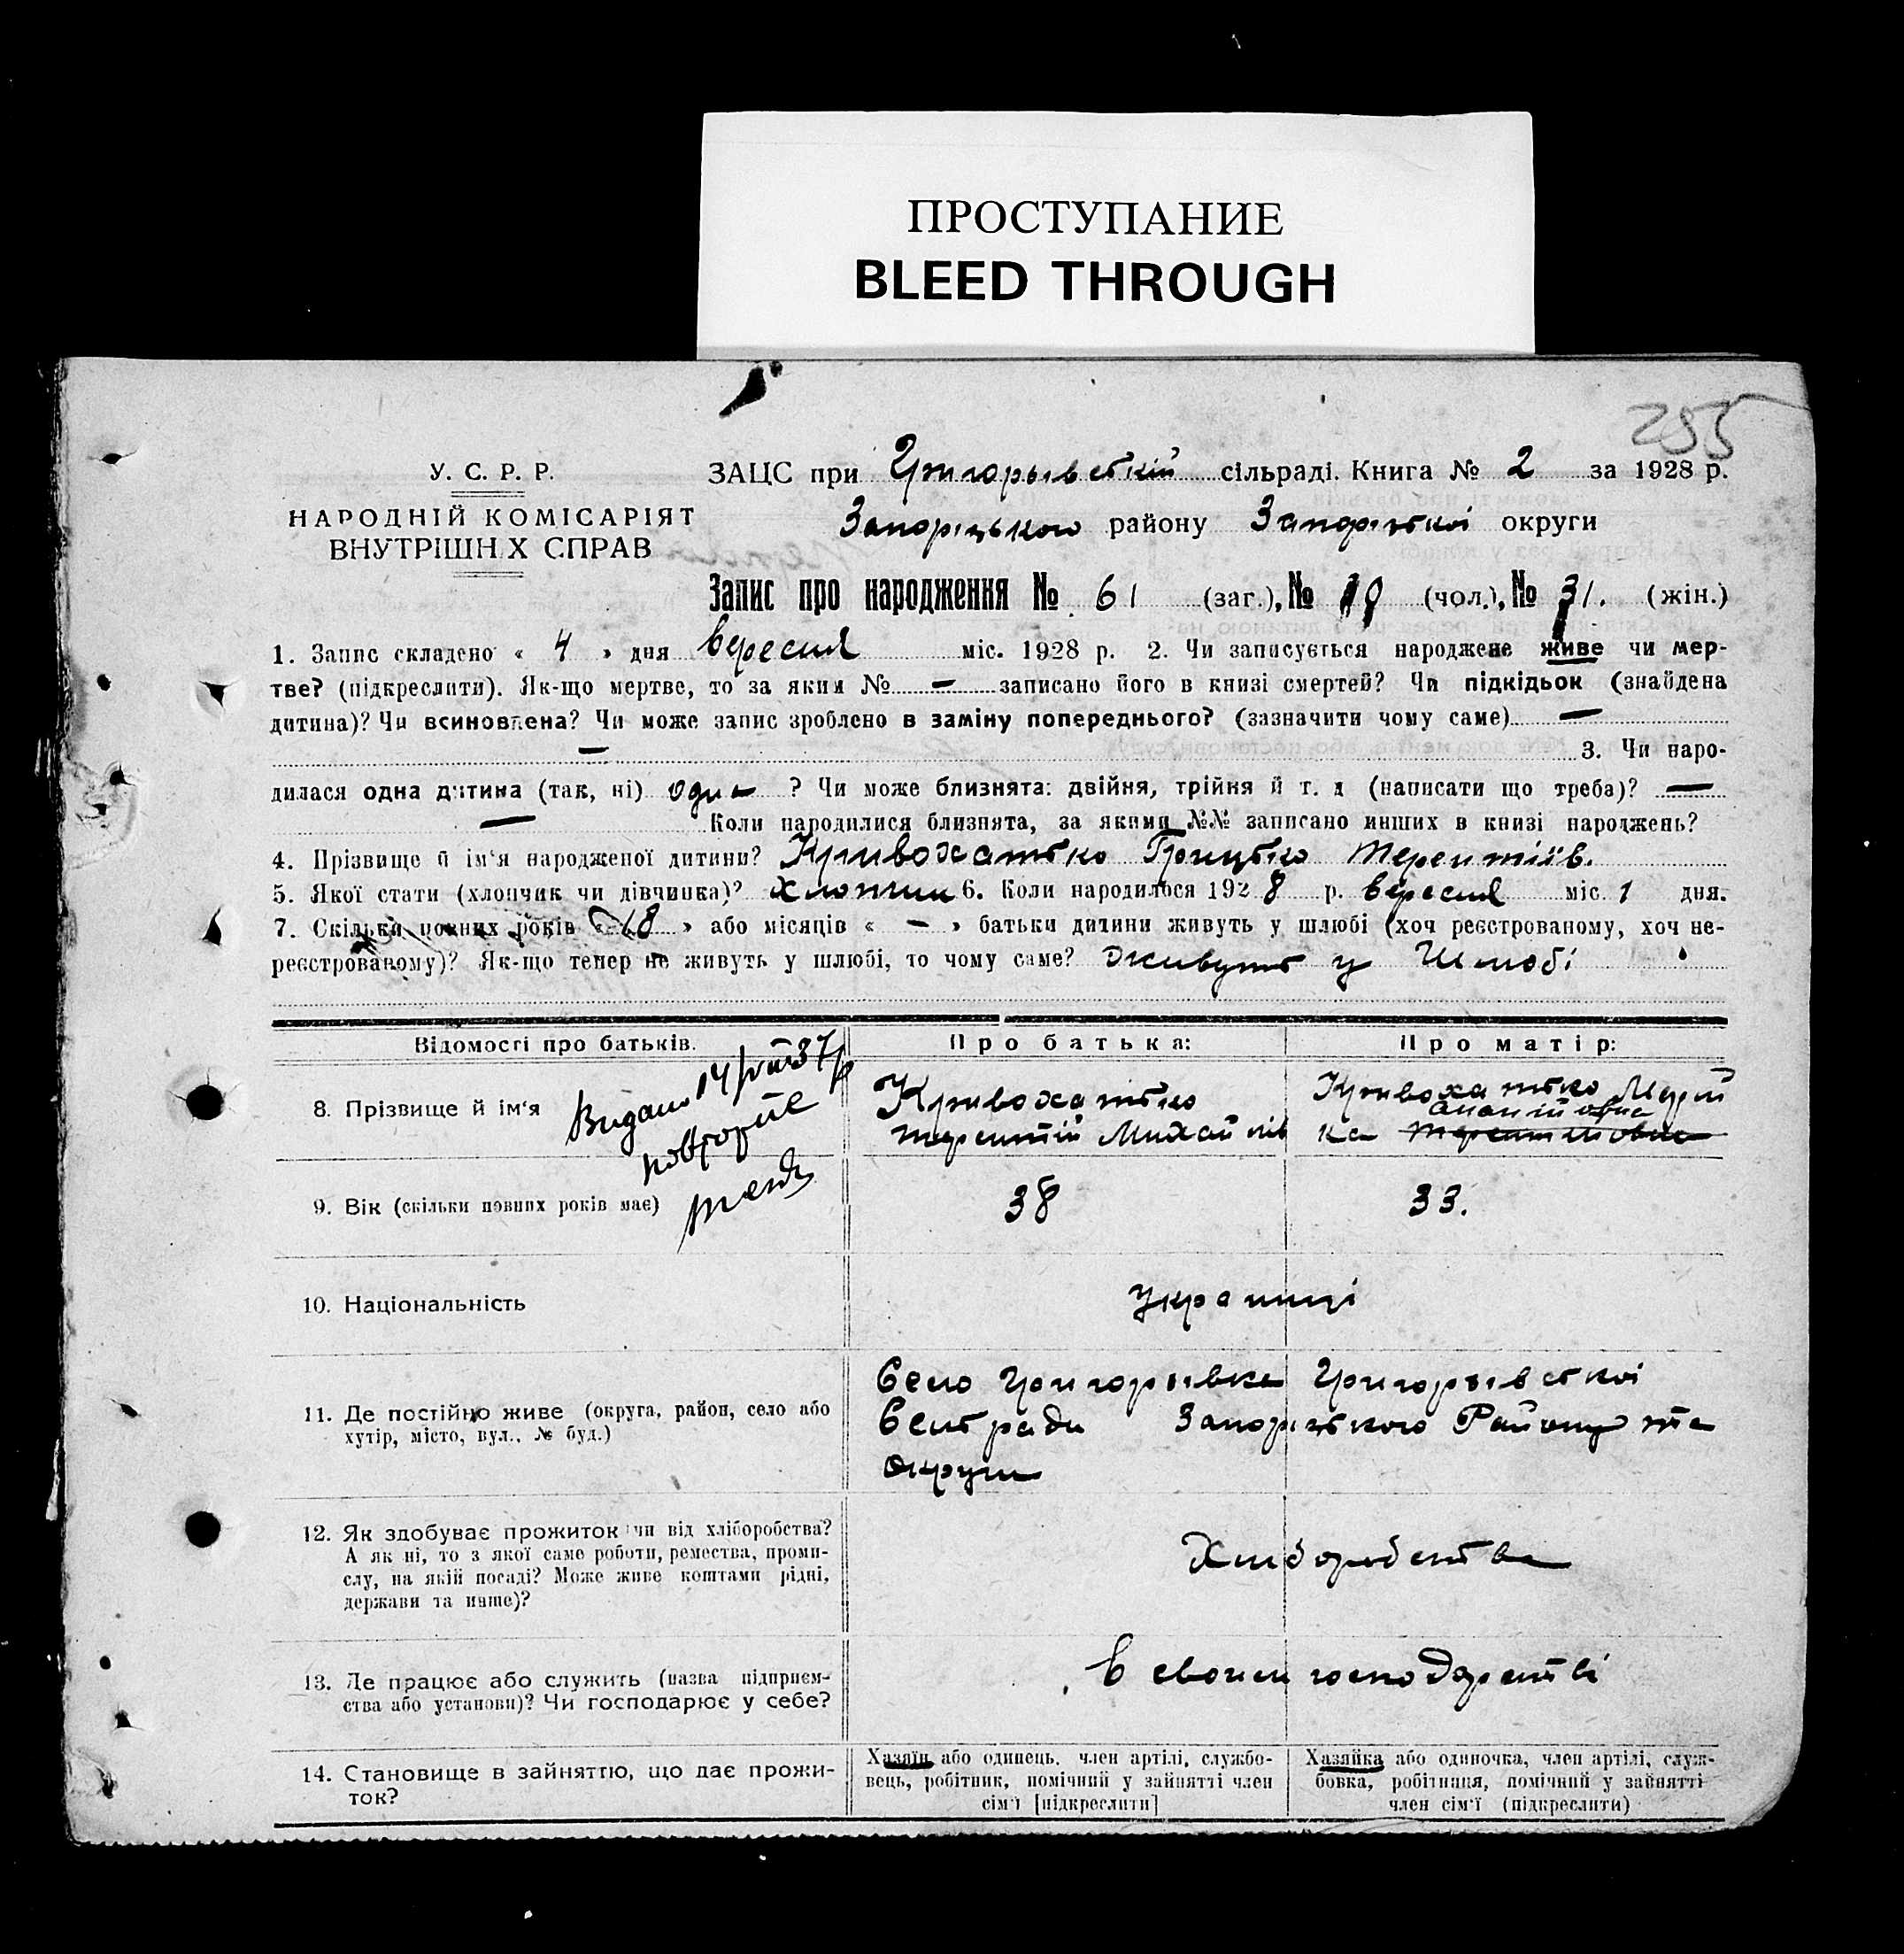 ПРОСТУПАНИЕ
BLEED THROUGH
255
У. С. Р. Р.
НАРОДНІЙ КОМІСАРІЯТ
ВНУТРІШНІХ СПРАВ
ЗАЦС при Григорьівській сільраді. Книга № 2 за 1928 р.
Запорізького району Запорізької округи
Запис про народження № 61 (заг.), № (чол.), № 31. (жін.)
1. Запис складено « 4 » дня Вересня міс. 1928 р. 2. Чи записується народжене живе чи мер-
тве? (підкреслити). Як-що мертве, то за яким № — записано його в книзі смертей? Чи підкідьок (знайдена
дитина)? Чи всиновлена? Чи може запис зроблено в заміну попереднього? (зазначити чому саме) —
— 3. Чи наро-
дилася одна дитина (так, ні) одна ? Чи може близнята: двійня, трійня й т. д (написати що треба)? —
— Коли народилися близнята, за якими №№ записано инших в книзі народжень?
4. Прізвище й ім'я народженої дитини? Кривохатько Грицько Терентіїв.
5. Якої стати (хлопчик чи дівчинка)? Хлопчик 6. Коли народилося 1928 р. Вересня міс. 1 дня.
7. Скільки повних років « 18 » або місяців « — » батьки дитини живуть у шлюбі (хоч реєстрованому, хоч не-
реєстрованому)? Як-що тепер не живуть у шлюбі, то чому саме? Живуть у Шлюбі
Відомості про батьків. Про батька: Про матір:
8. Прізвище й ім'я
Видано 14/VIII 37 р
повторне
Кривохатько
Терентій Михайлів
Кривохатько Марій
Ананіївна
ка Терентіївна
9. Вік (скільки повних років має) 38 33.
10. Національність Українці
11. Де постійно живе (округа, район, село або
хутір, місто, вул., № буд.)
Село Григорьівка Григорьівської
Сільради Запорізького Району та
Округи
12. Як здобуває прожиток чи від хліборобства?
А як ні, то з якої саме роботи, ремества, проми-
слу, на якій посаді? Може живе коштами рідні,
держави та инше)?
Хліборобства
13. Де працює або служить (назва підприєм-
ства або установи)? Чи господарює у себе?
В своїм господарстві
14. Становище в зайняттю, що дає прожи-
ток?
Хазяїн або одинець, член артілі, службо-
вець, робітник, помічний у зайнятті член
сім'ї [підкреслити]
Хазяйка або одиночка, член артілі, служ-
бовка, робітниця, помічний у зайнятті
член сім'ї (підкреслити)